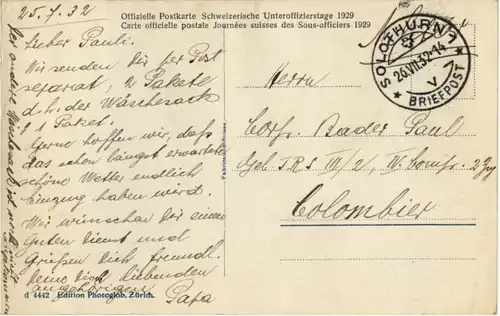 25.7.32
Offizielle Postkarte Schweizerische Unteroffizierstage 1929
Carte officielle postale Journées suisses des Sous-officiers 1929
Lieber Pauli.
Wir senden Dir per Post
separat, 2 Pakete
d.h. der Wäschesack
& 1 Paket.
Gerne hoffen wir, daß
das schon längst erwartete
schöne Wetter endlich
Einzug haben wird.
Wir wünschen Dir einen
guten Dienst und
Grüßen Dich freundl.
Deine Dich liebenden
Angehörigen
Papa
d 4442 Edition Photoglob, Zürich.
SOLOTHURN 1
26.VII.32-14
V
BRIEFPOST
Herrn
Corp. Bader Paul
Geb. J.R.S. III/2, IV. Komp. 2 Zug
Colombier